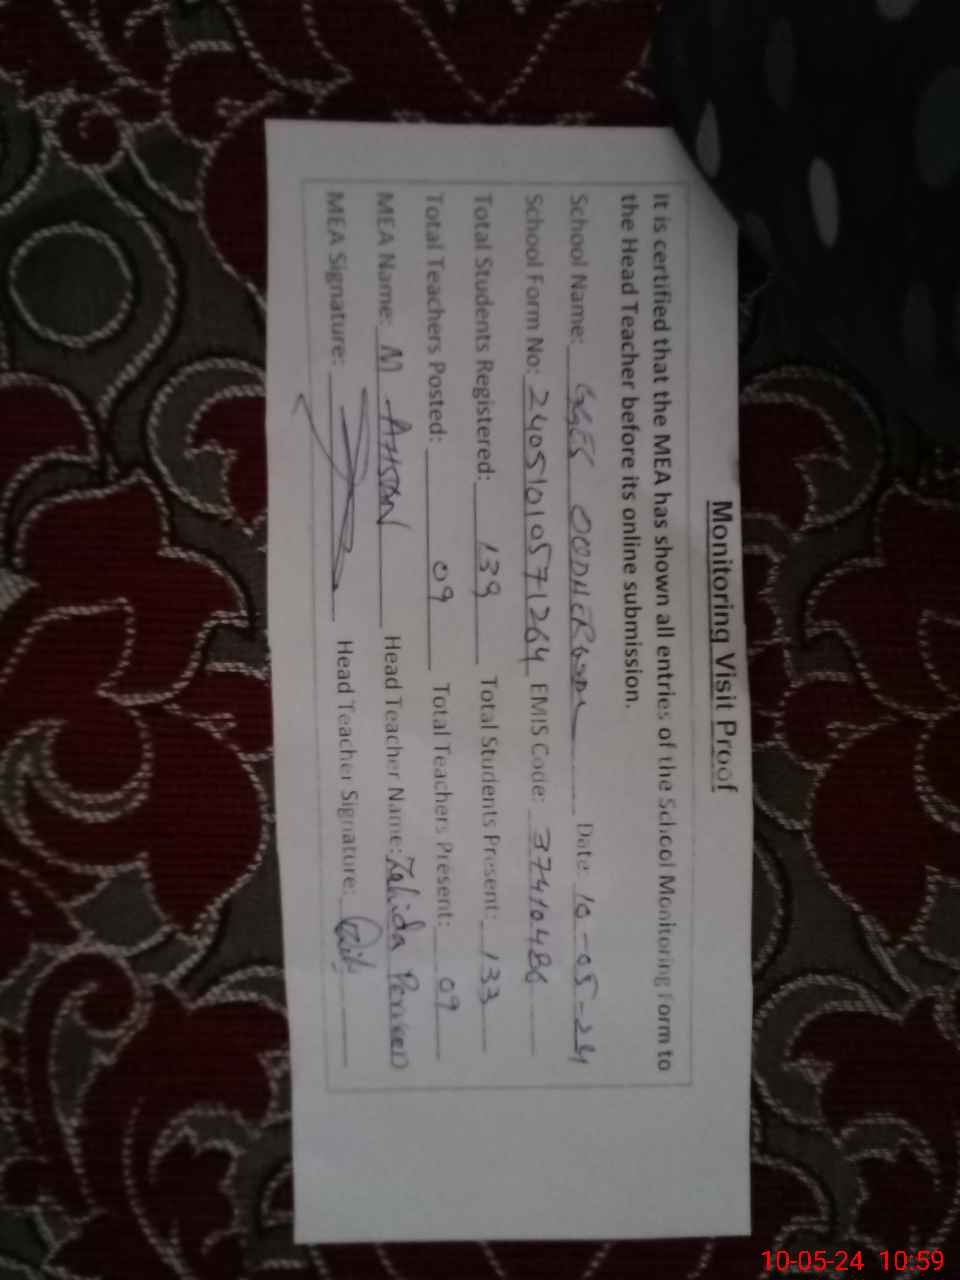 Monitoring Visit Proof
It is certified that the MEA has shown all entries of the School Monitoring Form to
the Head Teacher before its online submission.
School Name: GGES Date: 10-05-24
School Form No: 24051010571264 EMIS Code: 37410486
Total Students Registered: 139 Total Students Present: 133
Total Teachers Posted: 09 Total Teachers Present: 09
MEA Name: M AHSAN Head Teacher Name: Zahida Perveen
MEA Signature: Head Teacher Signature:
10-05-24 10:59